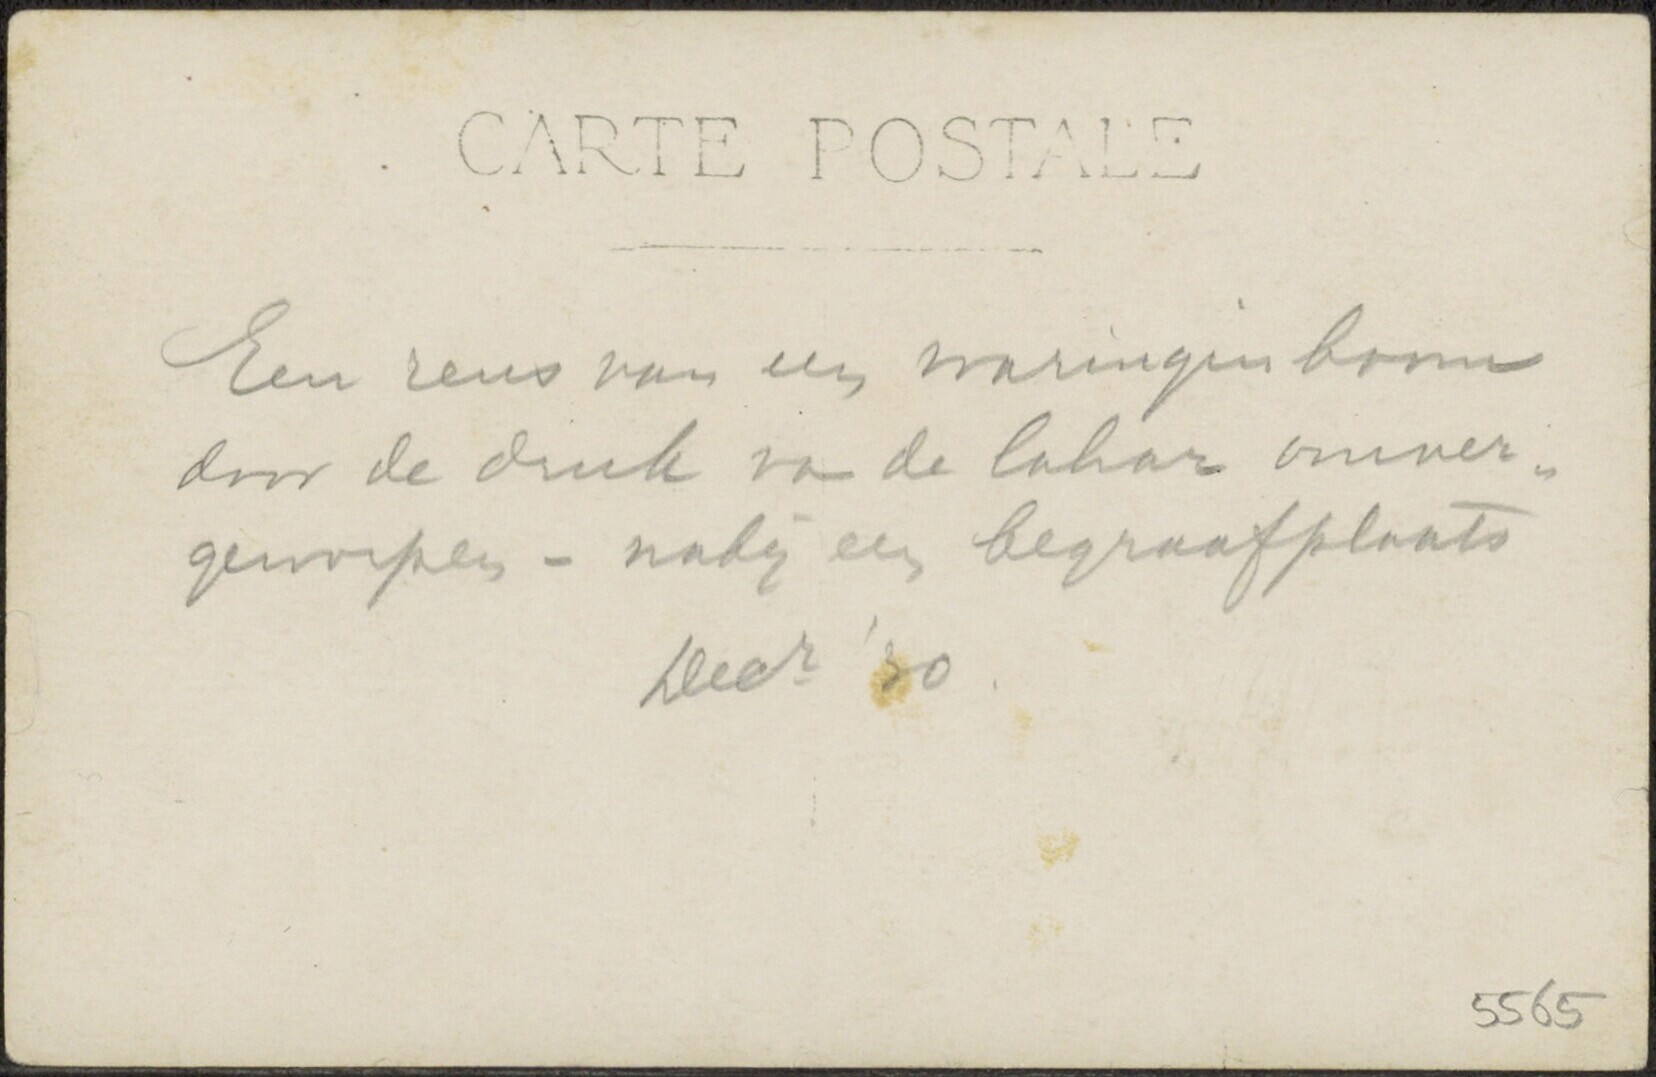 CARTE POSTALE
Een reus van een waringin boom
door de druk va de lahar omver-
geworpen - nabij een begraafplaats
Decr '30.
5565